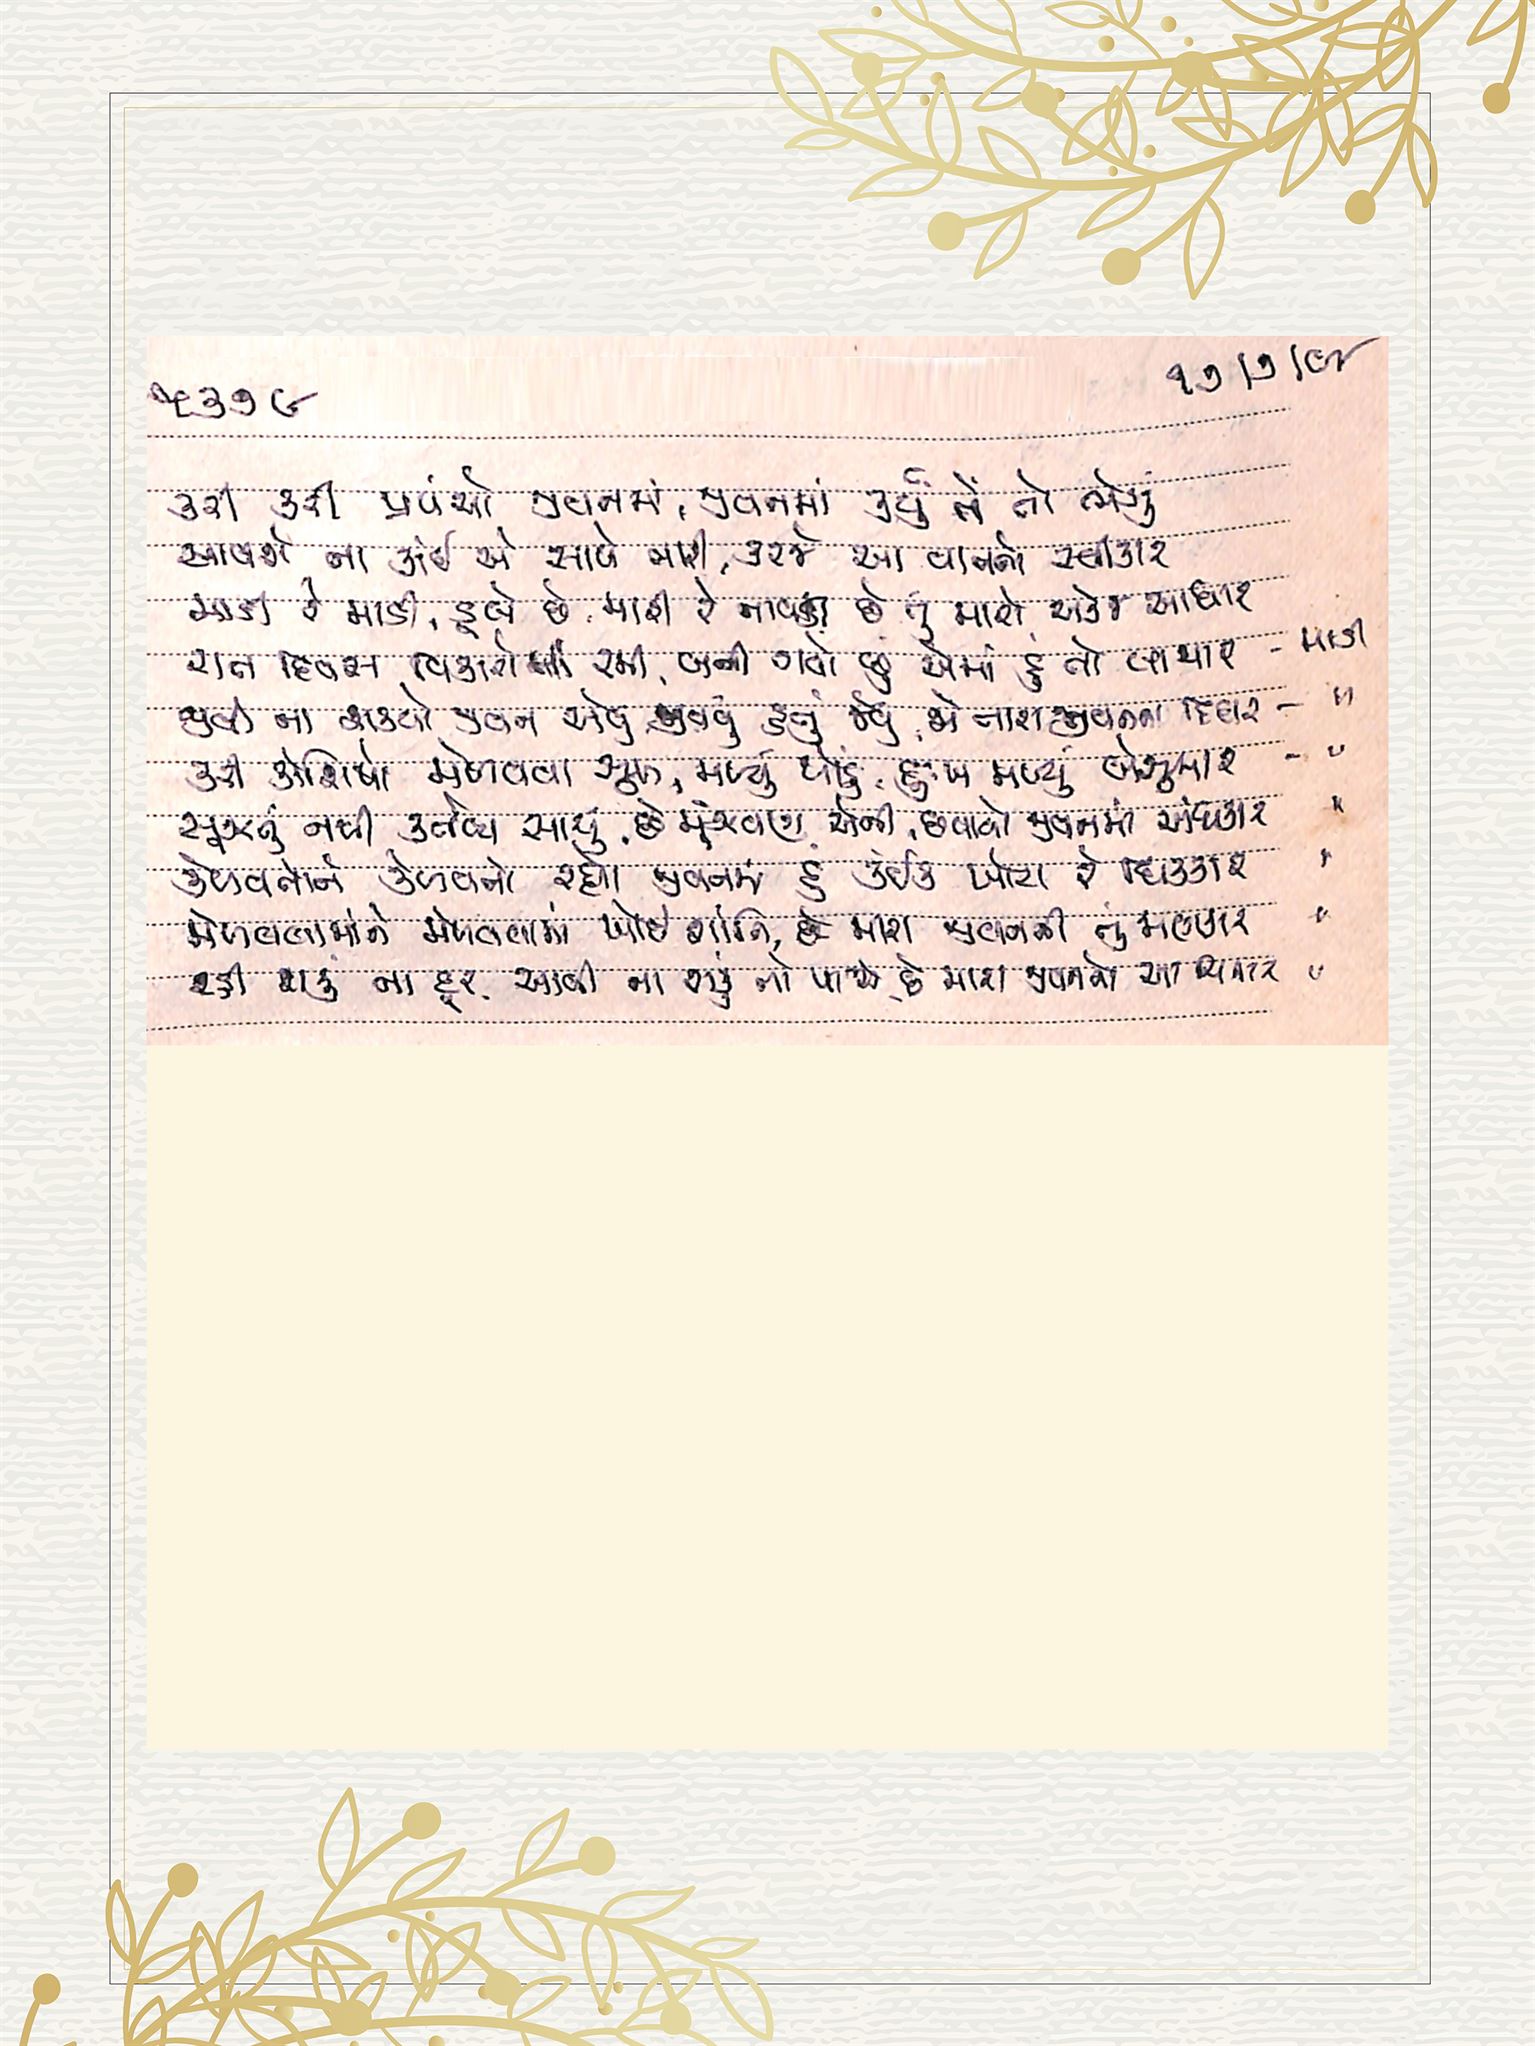 ૧૭/૭/૯૧
કરી કરી પ્રપંચો જીવનમાં, જીવનમાં કર્યું તેં તો ભેગું
આવશે ના કાંઈ એ સાથે તારી, કરજે આ વાતનો સ્વીકાર
માડી રે માડી, ડૂબે છે મારી રે નાવડી છે તું મારો એકજ આધાર
રાત દિવસ વિકારોમાં રમી, બની ગયો છું એમાં હું તો લાચાર - માડી
જીવી ના શક્યો જીવન એવું જીવવું હતું જેવું, જે તારા જીવનના દિદાર - "
કરી કોશિષો મેળવવા સુખ, મળ્યું થોડું, દુઃખ મળ્યું બેશુમાર - "
સૂઝતું નથી કર્તવ્ય સાચું, છે મૂંઝવણ એની, છવાયો જીવનમાં અંધકાર "
કેળવતાને કેળવતો રહ્યો જીવનમાં હું કંઈક ખોટા રે ધિક્કાર "
મેળવવામાંને મેળવવામાં ખોઈ શાંતિ, છે મારા જીવનની તું મલકાર "
રહી શકું ના દૂર, આવી ના શકું તો પાસે, છે મારા જીવનનો આ ચિતાર "